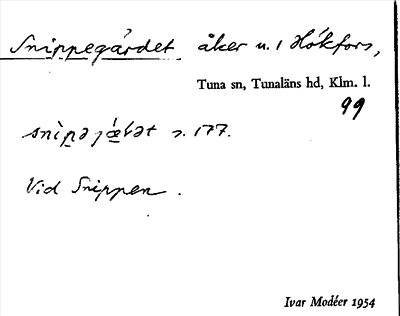 Snippegärdet åker u. 1 Hökfors,
Tuna sn, Tunaläns hd, Klm. l.
99
s. 177.
Vid Snippen.
Ivar Modéer 1954